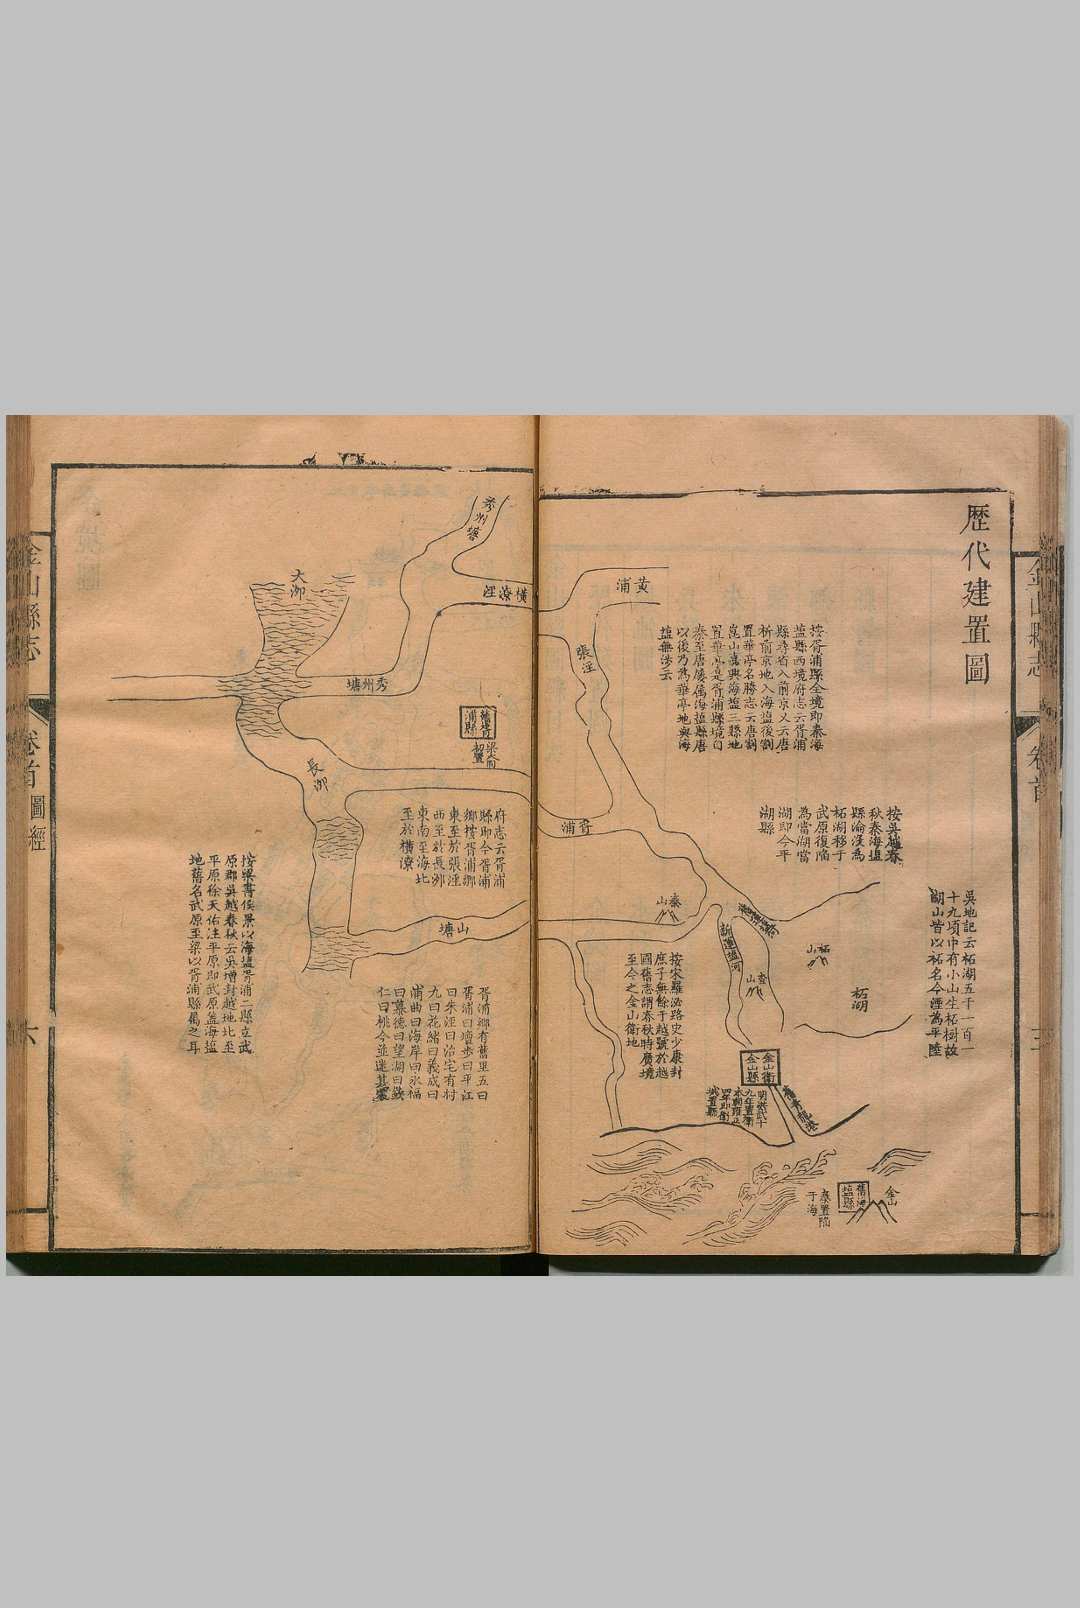 歷代建置圖
金山縣志
卷首
吳地記云柘湖五千一百一
十九頃中有小山生柘樹故
湖山皆以柘名今湮為平陸
按吳越春
秋秦海塩
縣淪沒為
柘湖移于
武原復陷
為當湖當
湖即今平
湖縣
按胥浦縣全境即秦海
塩縣西境府志云胥浦
縣尋省入前京乂云唐
析前京地入海塩後割
置華亭名勝志云唐割
崑山嘉興海塩三縣地
置華亭是胥浦縣境自
秦至唐屢屬海塩縣唐
以後乃為華亭地與海
塩無涉云
黃浦
張涇
胥浦
秦山
柘山
柘湖
查山
新運塩河
按宋羅泌路史少康封
庶子無餘于越號於越
國舊志謂春秋時廣境
至今之金山衛地
金山衛
金山縣
明洪武十
九年置衛
本朝雍正
四年即衛
城置縣
舊海
塩縣
金山
秦置陷
于海
秀州塘
橫潦涇
大泖
秀州塘
舊胥
浦縣
梁大同
初置
長泖
府志云胥浦
縣即今胥浦
鄉按胥浦鄉
東至於張涇
西至於長泖
東南至海北
至於橫潦
山塘
胥浦鄉有舊里五曰
胥浦曰壇步曰平江
曰朱涇曰治宅有村
九曰花緒曰義成曰
浦曲曰海岸曰永福
曰慕德曰望湖曰
仁曰桃今並迷其處
按梁書侯景以海塩胥浦二縣立武
原郡吳越春秋云吳增封越地北至
平原徐天佑注平原即武原蓋海塩
地舊名武原至梁以胥浦縣屬之耳
金山縣志
卷首
圖經
六